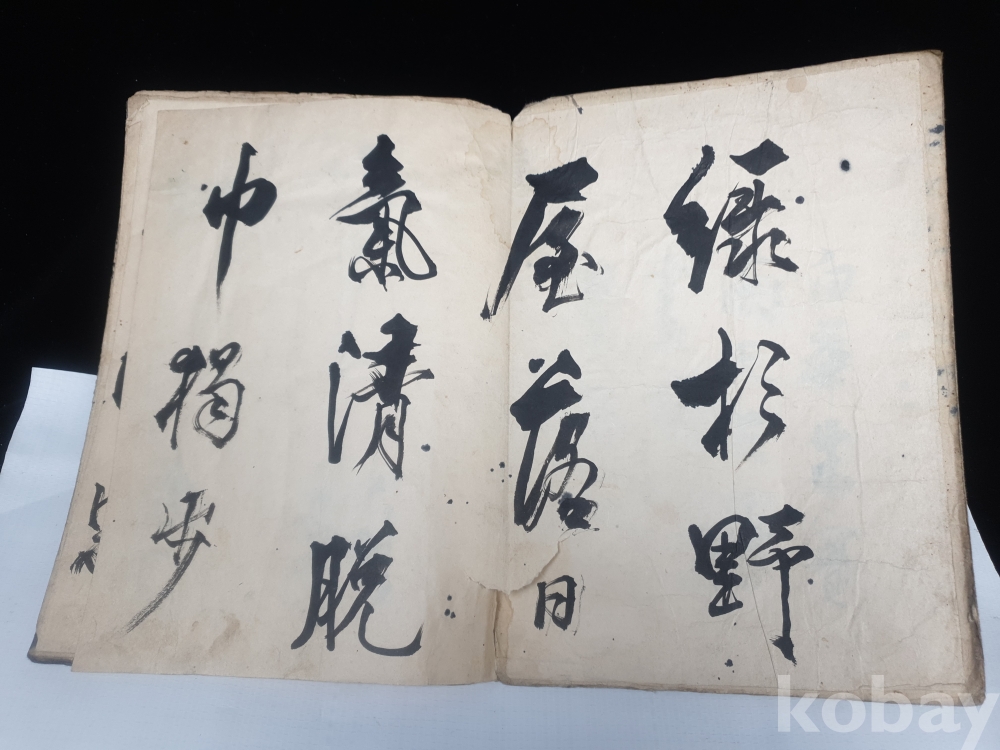 綠杉野
屋落日
氣清脫
巾獨步
kobay